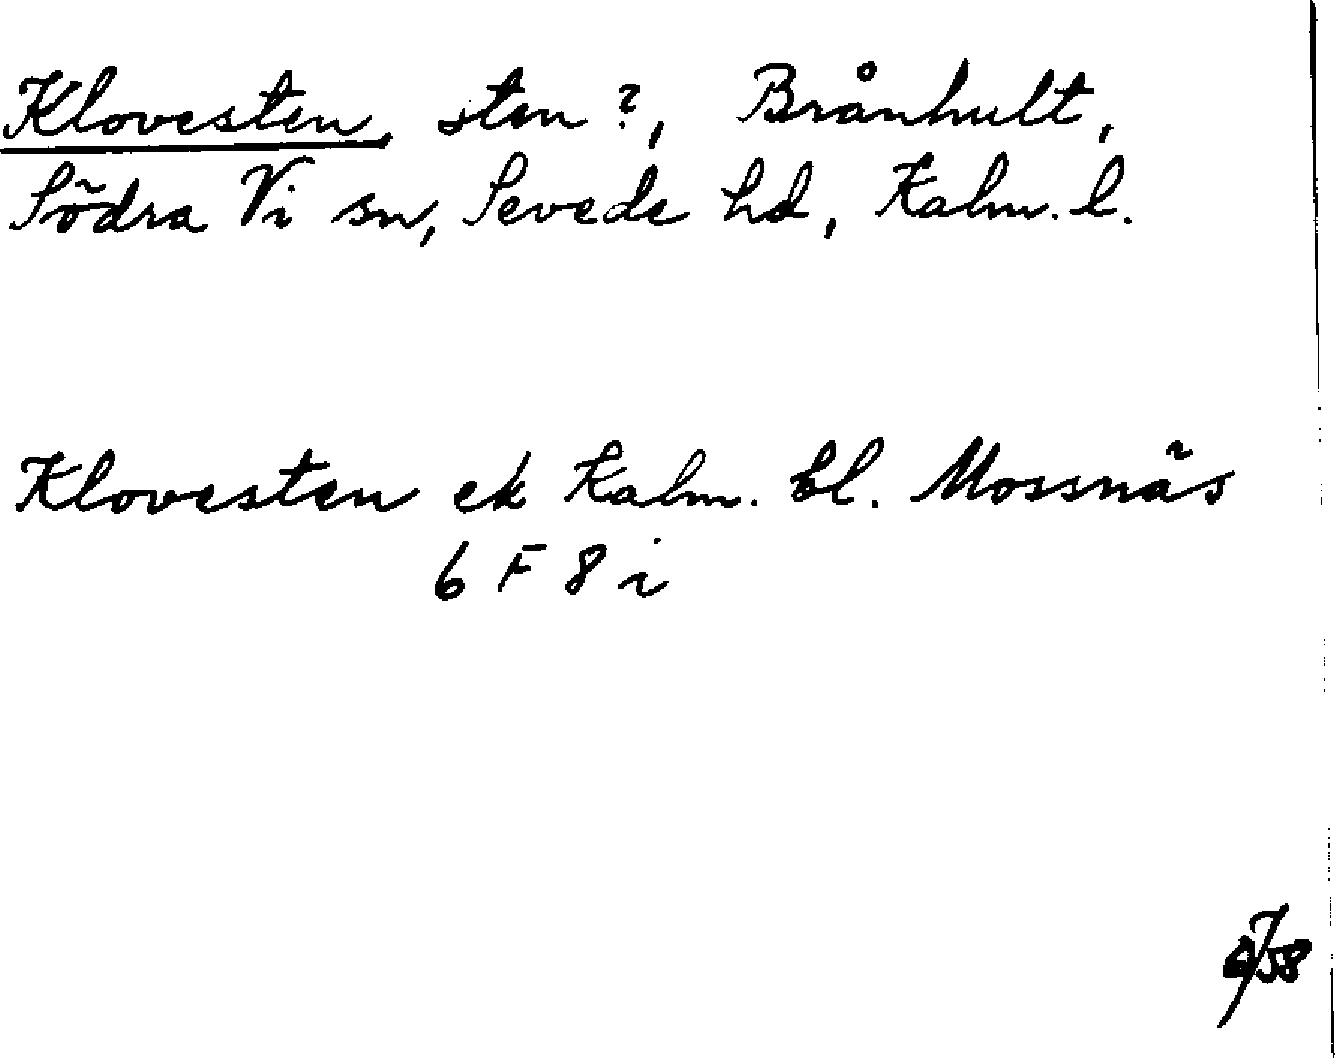 Klovesten, sten?, Brånhult,
Södra Vi sn, Sevede hd, Kalm. l.
Klovesten ek Kalm. bl. Mossnäs
6 F 8 i